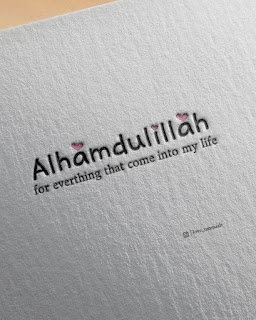 Alhamdulillah
for everthing that come into my life